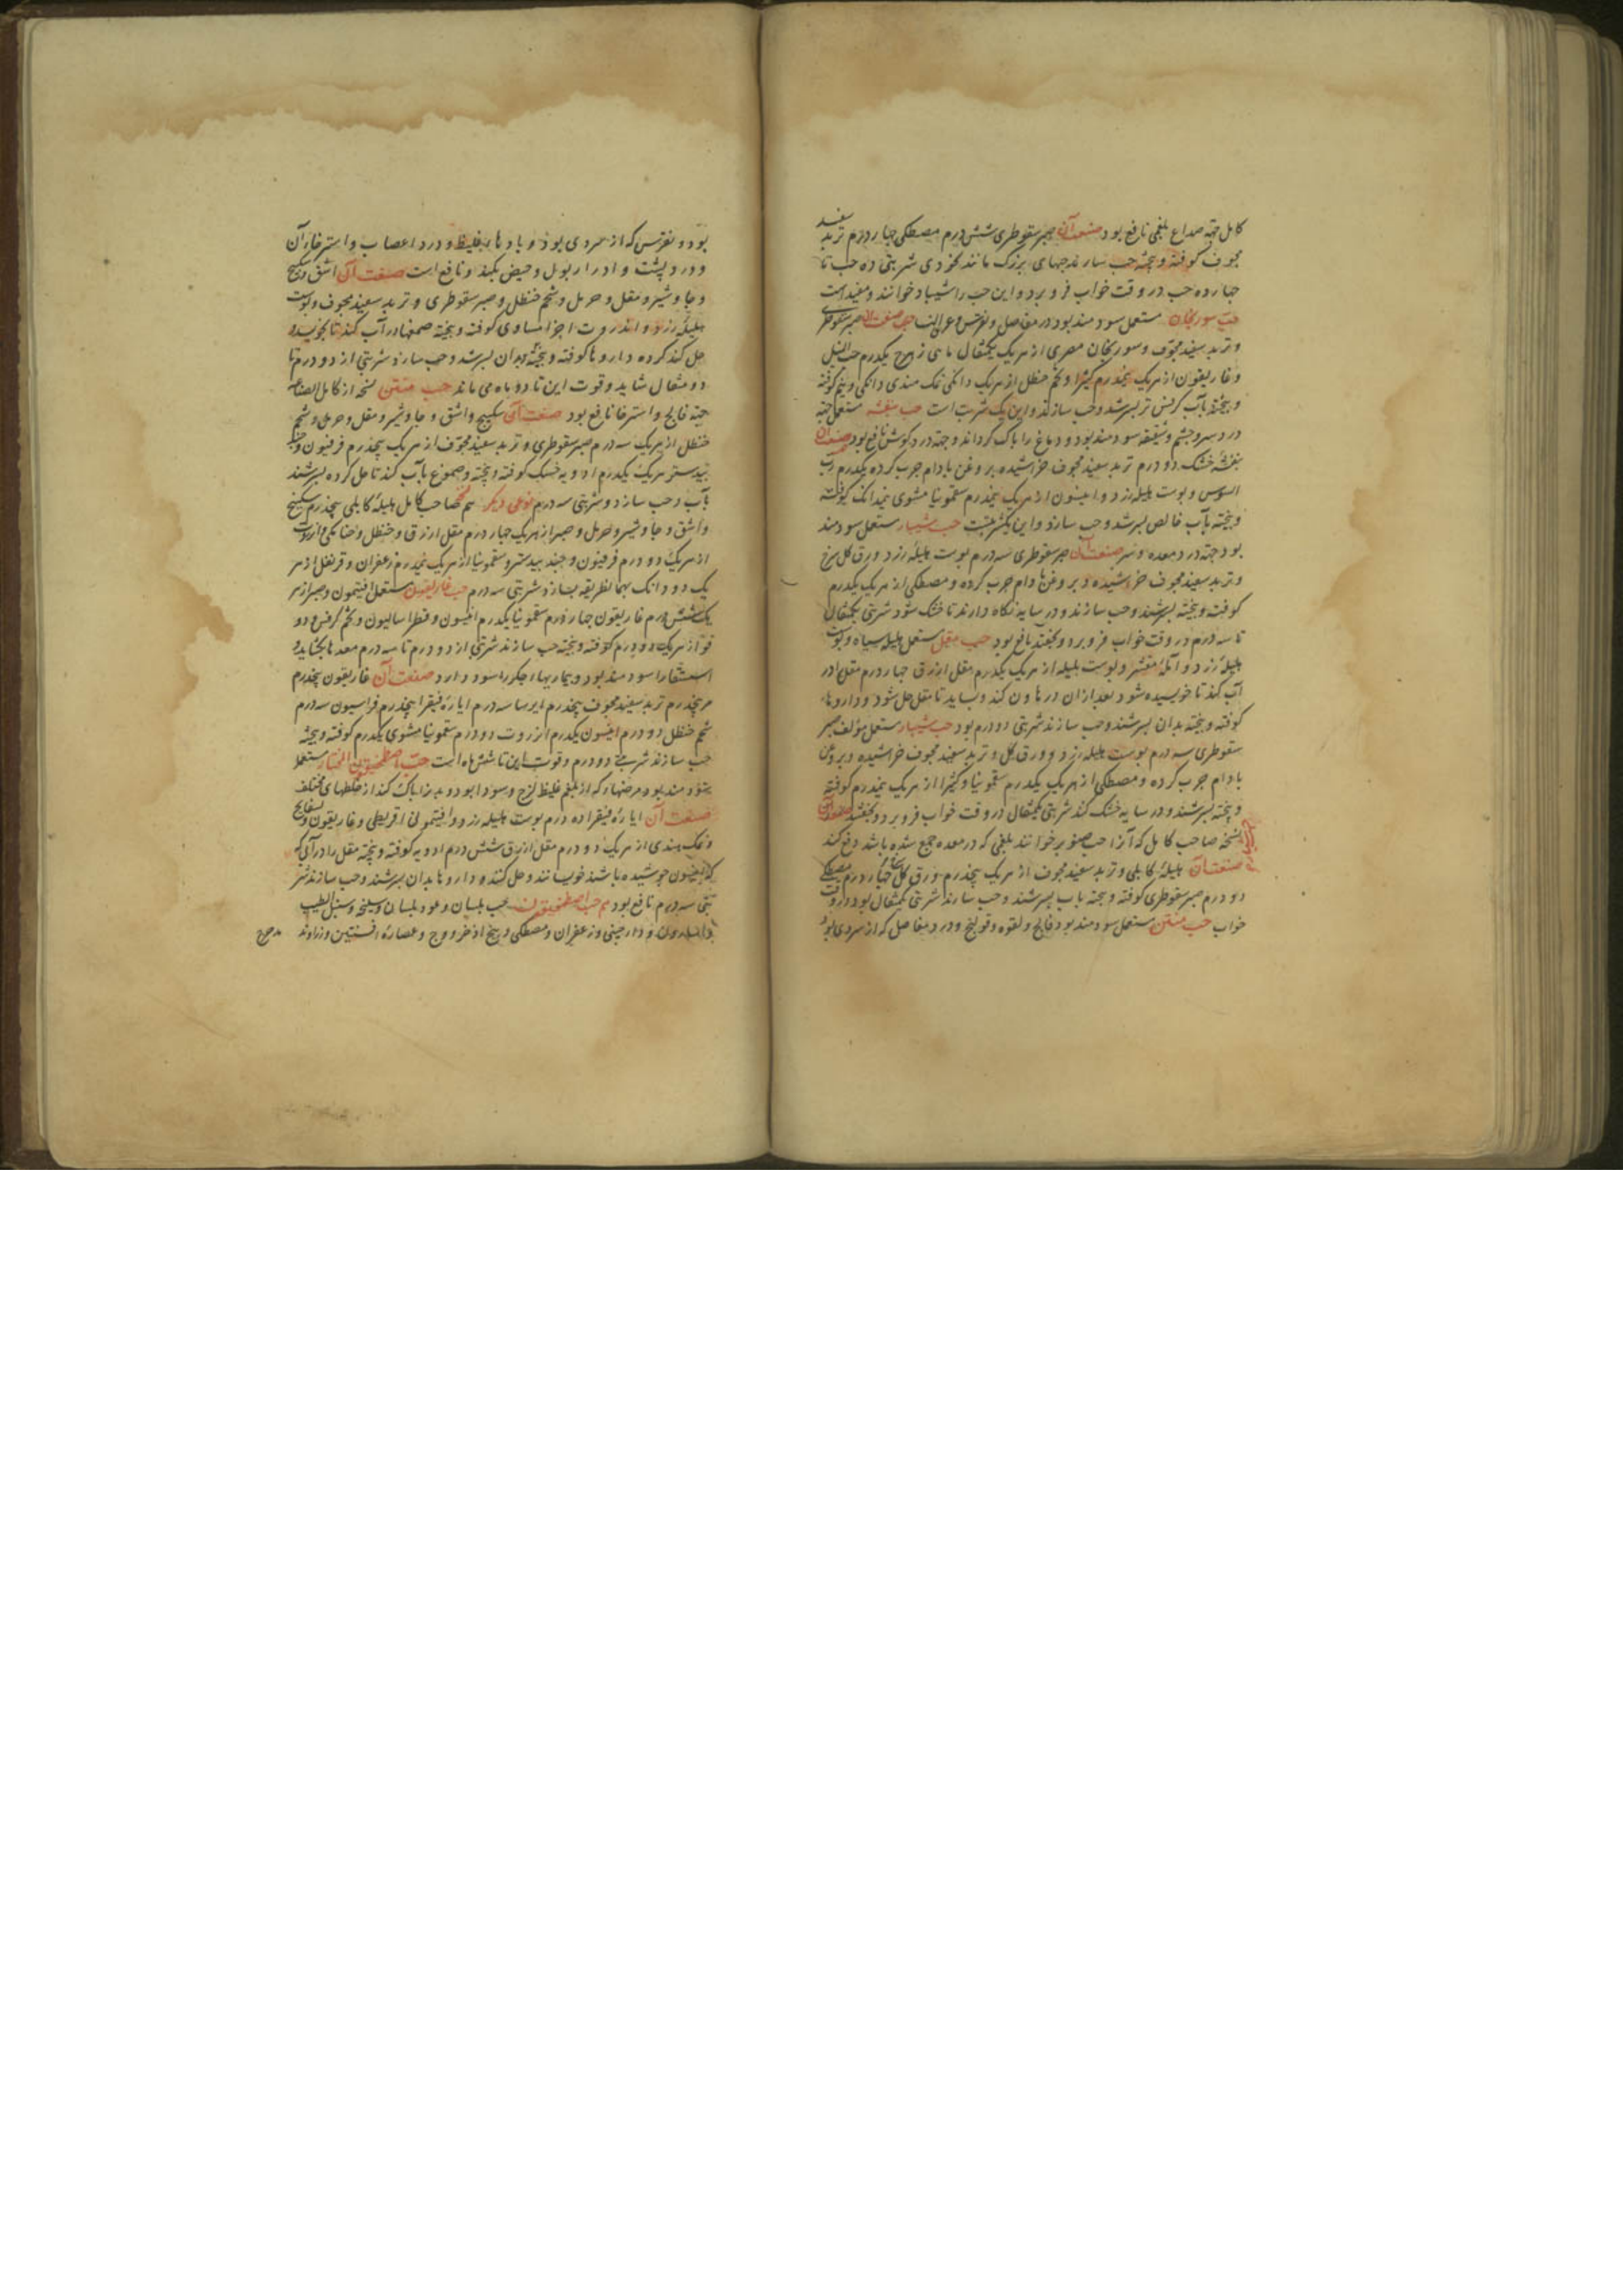 کامل جهة صداع بلغمی نافع بود صنعت آن صبر سقوطری شش درم مصطکی چهار درم تربد سفید
مجوف کوفته و بیخته حب سازند حبهای بزرک مانند نخودی شربتی ده حب تا
چهارده حب در وقت خواب فرو برد و این حب را شبیار خوانند و مفید است
حب سورنجان مستعمل سودمند بود در مفاصل و نقرس و عرق النسا صنعت آن صبر سقوطری
و تربد سفید مجوف و سورنجان مصری از هریک یکمثقال ماهی زهرج یکدرم حب النیل
و غاریقون از هریک نیمدرم کتیرا و شحم حنظل از هریک دانکی نمک هندی دانکی و نیم کوفته
و بیخته بآب کرفس تر بسرشد و حب سازند و این یک شربت است حب بنفشه مستعمل جهة
درد سر و چشم و شقیقه سودمند بود و دماغ را پاک کرداند و جهة درد کوش نافع بود صنعت آن
بنفشه خشک دو درم تربد سفید مجوف خراشیده بروغن بادام چرب کرده یکدرم رب
السوس و پوست هلیله زرد و انیسون از هریک نیمدرم سقمونیا مشوی نیمدانک کوفته
و بیخته بآب خالص بسرشد و حب سازد و این یکشربتست حب شبیار مستعمل سودمند
بود جهة درد معده و سر صنعت آن صبر سقوطری سه درم پوست هلیله زرد ورق کل سرخ
و تربد سفید مجوف خراشیده و بروغن بادام چرب کرده و مصطکی از هریک یکدرم
کوفته و بیخته بسرشند و حب سازند و در سایه نکاه دارند تا خشک شود شربتی یکمثقال
تا سه درم در وقت خواب فرو برد و بخفتد نافع بود حب مقل مستعمل هلیله سیاه و پوست
هلیله زرد و آمله مقشر و پوست بلیله از هریک یکدرم مقل ازرق چهار درم مقل را در
آب کند تا خویسیده شود بعد ازان در هاون کند و بساید تا مقل حل شود و داروها
کوفته و بیخته بدان بسرشند و حب سازند شربتی دو درم بود حب شبیار مستعمل مؤلف صبر
سقوطری سه درم پوست هلیله زرد و ورق کل و تربد سفید مجوف خراشیده و بروغن
بادام چرب کرده و مصطکی از هریک یکدرم سقمونیا و کتیرا از هریک نیمدرم کوفته
و بیخته بسرشند و در سایه خشک کند شربتی یکمثقال در وقت خواب فرو برد و بخفتد
نسخه صاحب کامل که آنرا حب صنوبر خوانند بلغمی که در معده جمع شده باشد دفع کند
صنعت آن هلیله کابلی و تربد سفید مجوف از هریک پنجدرم ورق کل سرخ چهار درم مصطکی
دو درم صبر سقوطری کوفته و بیخته بآب بسرشند و حب سازند شربتی یکمثقال بود در وقت
خواب حب منتن مستعمل سودمند بود فالج و لقوه و قولنج و درد مفاصل که از سردی بود
بود و نقرس که از سردی بود و بادهاء غلیظ و درد اعصاب و استرخاء آن
و درد پشت و ادرار بول و حیض بکند و نافع است صنعت آن اشق و سکبینج
و جاوشیر و مقل و حرمل و شحم حنظل و صبر سقوطری و تربد سفید مجوف و پوست
هلیله زرد و انزروت اجزا مساوی کوفته و بیخته صمغها در آب کند تا بخویسد و
حل کند کرده داروها کوفته و بیخته بدان بسرشد و حب سازد شربتی از دو درم تا
دو مثقال شاید و قوت این تا دو ماه می ماند حب منتن نسخه از کامل الصناعه
جهة فالج و استرخا نافع بود صنعت آن سکبینج و اشق و جاوشیر و مقل و حرمل و شحم
حنظل از هریک سه درم صبر سقوطری و تربد سفید مجوف از هریک پنجدرم فرفیون و جند
بیدستر هریک یکدرم ادویه خشک کوفته و بیخته و صموغ بآب کند تا حل کرده بسرشند
بآب و حب سازد و شربتی سه درم نوعی دیکر هم صاحب کامل هلیله کابلی پنجدرم سکبینج
و اشق و جاوشیر و حرمل و صبر از هریک چهار درم مقل ازرق و حنظل و حنا مکی و انزروت
از هریک دو درم فرفیون و جند بیدستر و سقمونیا از هریک نیمدرم زعفران و قرنفل از هر
یک دو دانک بهمان طریقه بسازد شربتی سه درم حب غاریقون مستعمل افتیمون و صبر از هر
یک شش درم غاریقون چهار درم سقمونیا یکدرم انیسون و فطراسالیون و تخم کرفس و دو
قو از هریک دو درم کوفته و بیخته حب سازند شربتی از دو درم تا سه درم معده بکشاید و
استسقا را سودمند بود و بیماریهاء جکر را سود دارد صنعت آن غاریقون پنجدرم
مر پنجدرم تربد سفید مجوف پنجدرم ایرسا سه درم ایاره فیقرا پنجدرم فراسیون سه درم
شحم حنظل دو درم انیسون یکدرم انزروت دو درم سقمونیا مشوی یکدرم کوفته و بیخته
حب سازند شربتی دو درم و قوت این تا شش ماه است حب اصطمخیقون المختار مستعمل
سودمند بود مرضهاء که از بلغم غلیظ لزج و سودا بود و بدنرا پاک کند از خلطهای مختلف
صنعت آن ایاره فیقرا ده درم پوست هلیله زرد و افتیمون اقریطی و غاریقون و بسفایج
و نمک هندی از هریک دو درم مقل ازرق شش درم ادویه کوفته و بیخته مقل را در آبی که
که افتیمون جوشیده باشند خویسانند و حل کنند و داروها بدان بسرشند و حب سازند شر
بتی سه درم نافع بود هم حب اصطمخیقون حب بلسان و عود بلسان و سلیخه و سنبل الطیب
و دارچینی و زعفران و مصطکی و بیخ اذخر و وج و عصاره افسنتین و زراوند
مدحرج